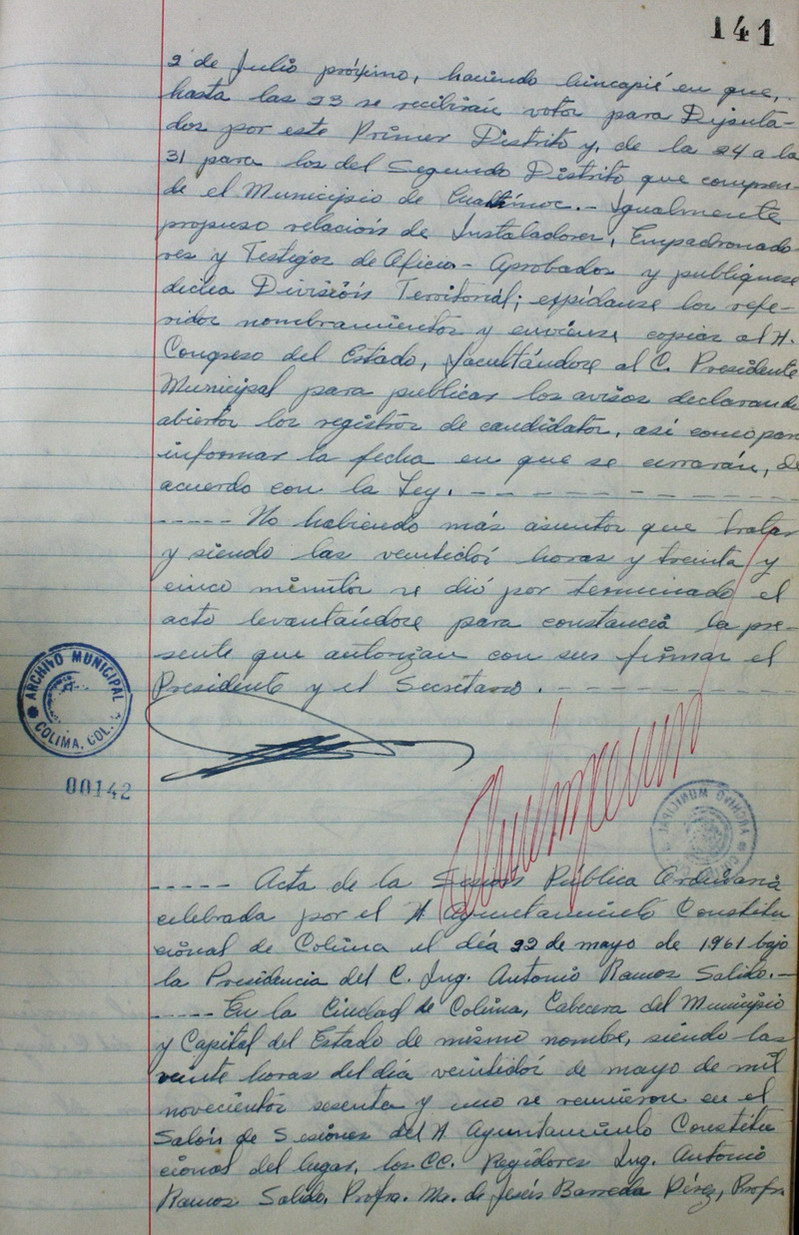 141
2 de Julio próximo, haciendo hincapié en que,
hasta las 23 se recibirán votos para Diputa-
dos por este Primer Distrito y, de la 24 a la
31 para los del Segundo Distrito que compren-
de el Municipio de Cuauhtémoc.- Igualmente
propuso relación de Instaladores, Empadronado
res y Testigos de Oficio- Aprobados y publíquese
dicha División Territorial; expídanse los refe-
ridos nombramientos y envíense copias al H.
Congreso del Estado, facultándose al C. Presidente
Municipal para publicar los avisos declarando
abiertos los registros de candidatos, así como para
informar la fecha en que se cerrarán, de
acuerdo con la Ley. - - - - - - - - - - - -
----- No habiendo más asuntos que tratar
y siendo las veintidós horas y treinta y
cinco minutos se dió por terminado el
acto levantándose para constancia la pre-
sente que autorizan con sus firmas el
Presidente y el Secretario. - - - - - - - - -
ARCHIVO MUNICIPAL
COLIMA, COL.
00142
ARCHIVO MUNICIPAL
----- Acta de la Sesión Pública Ordinaria
celebrada por el H Ayuntamiento Constitu
cional de Colima el día 22 de mayo de 1961 bajo
la Presidencia del C. Ing. Antonio Ramos Salido.-
----- En la Ciudad de Colima, Cabecera del Municipio
y Capital del Estado de mismo nombre, siendo las
veinte horas del día veintidós de mayo de mil
novecientos sesenta y uno se reunieron en el
Salón de Sesiones del H Ayuntamiento Constitu
cional del lugar, los CC. Regidores Ing. Antonio
Ramos Salido, Profra. Ma. de Jesús Barreda Pérez, Profr.